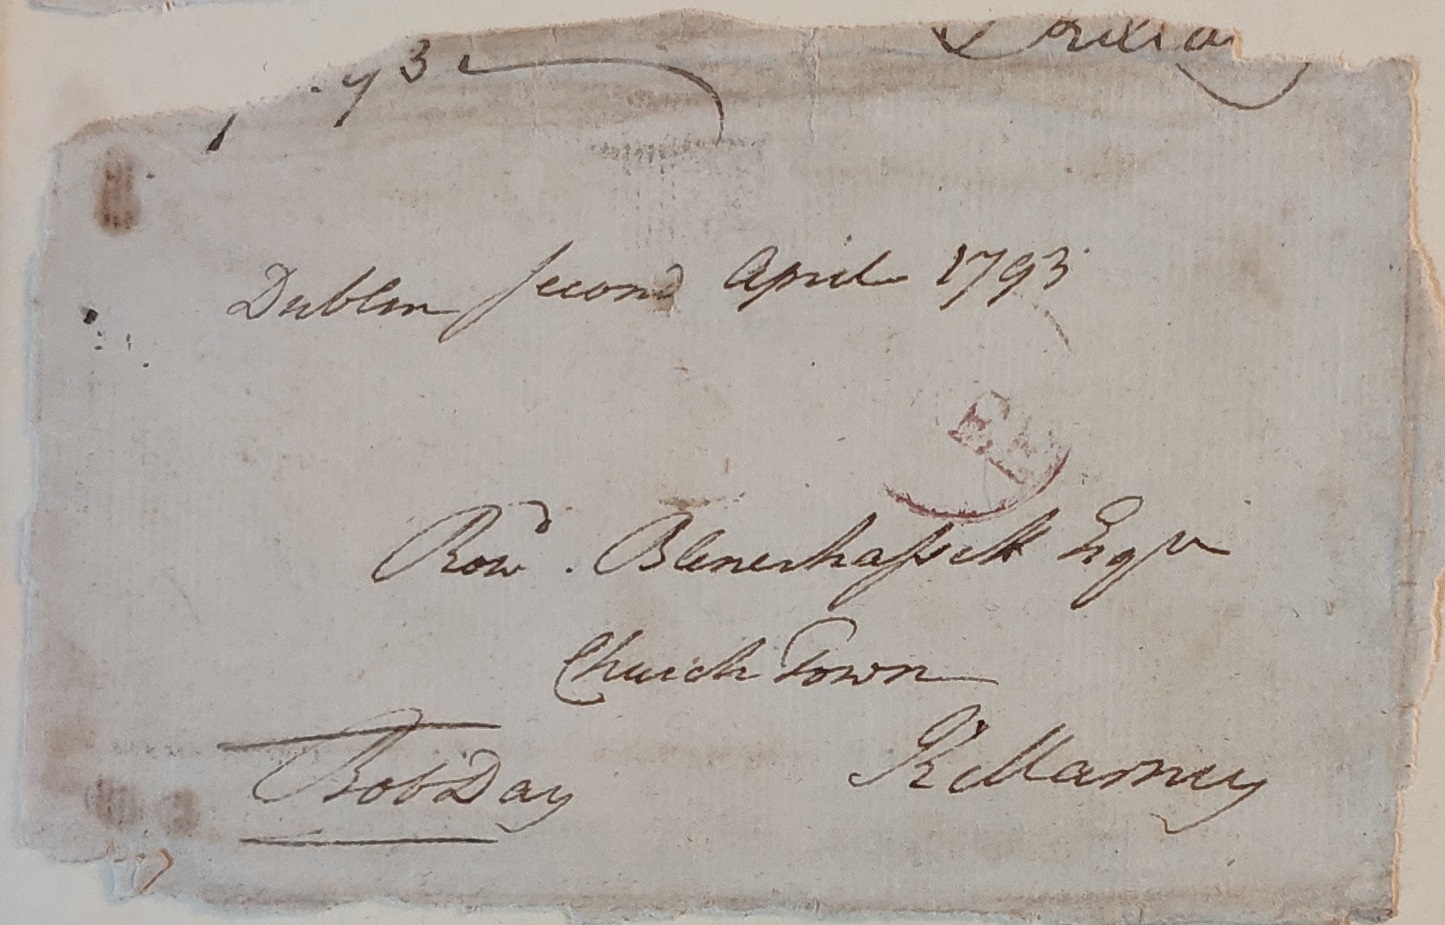 93
Dublin second April 1793
Row.d Blenerhassett Esqr
Church Town
Killarney
Robt Day